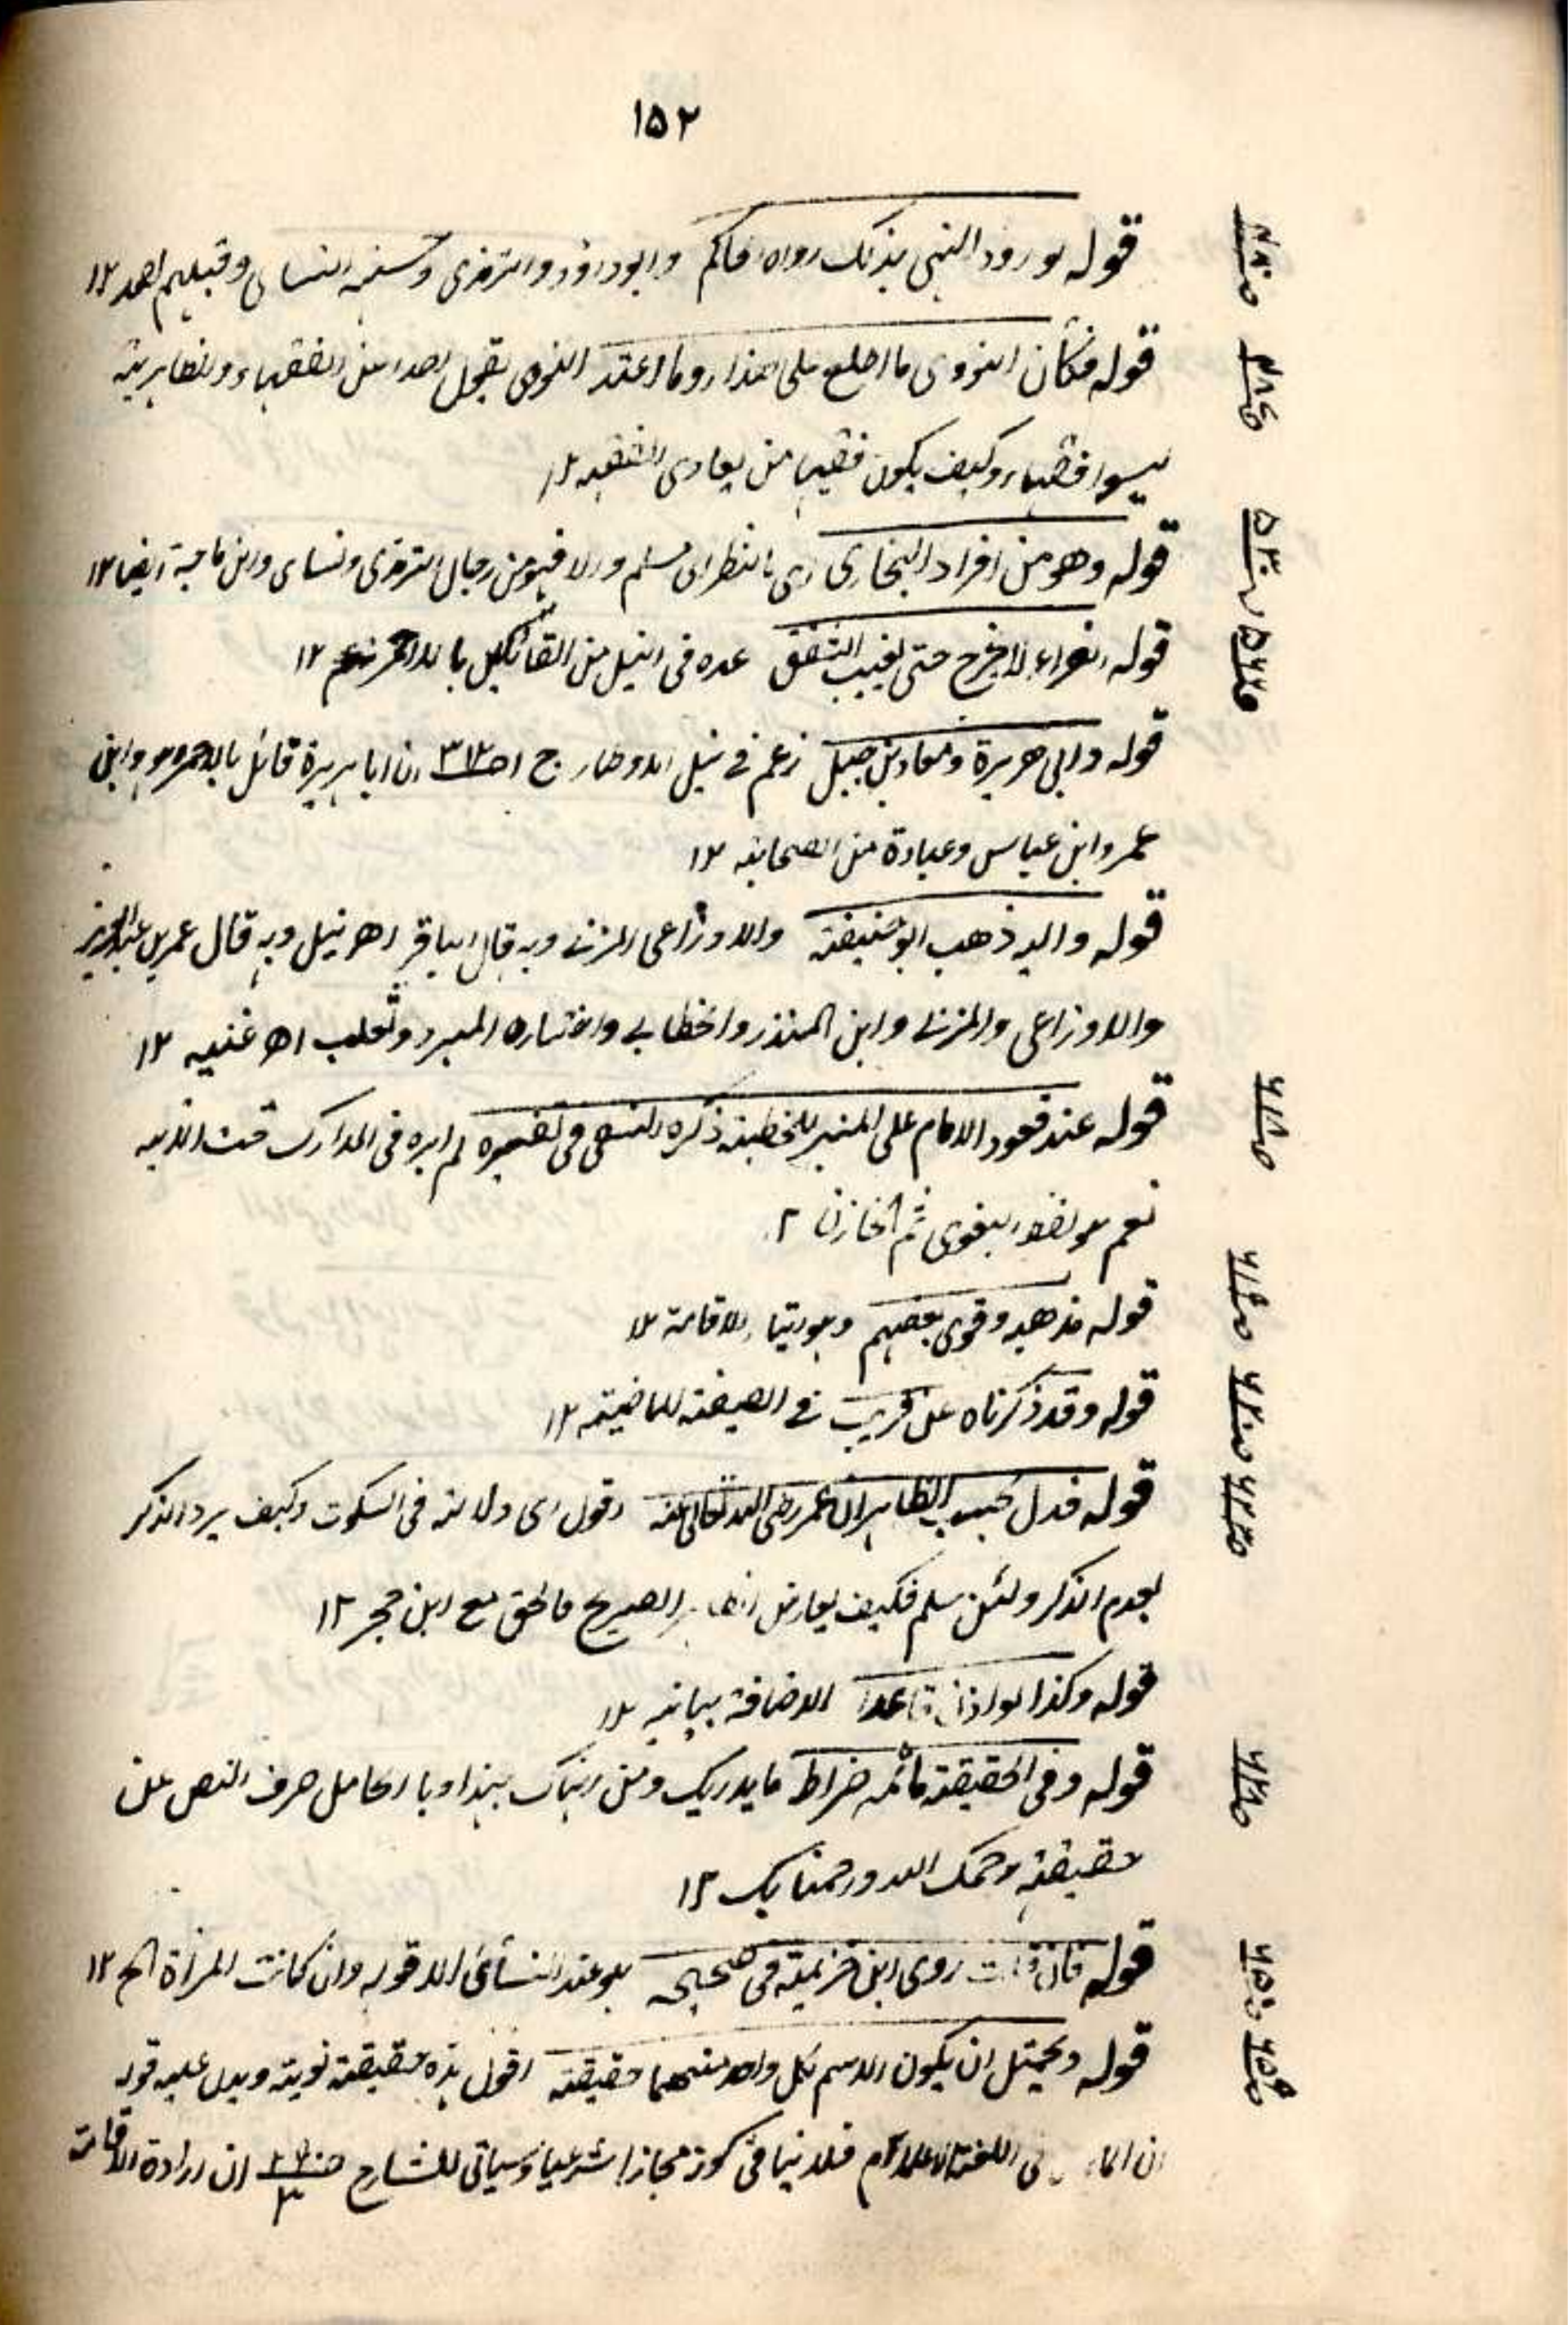 ١٥٢
قوله لورود النهي بذلك رواه الحاكم وابوداؤد والترمذى وحسنه النسائى وقبلهم احمد ١٢
قوله فكأن النووى ما اطلع على هذا او ما اعتد النووى بقول احد من الفقهاء والظاهرية
ليسوا فقهاء وكيف يكون فقيها من يعادى الفقه ١٢
قوله وهو من افراد البخارى اى بالنظر الى مسلم والا فهو من رجال الترمذى ونسائى وابن ماجة ايضا ١٢
قوله لا يخرج حتى يغيب الشفق عده فى النيل من القائلين بالاحمر ١٢
قوله وابى هريرة ومعاذ بن جبل زعم فى نيل الاوطار ج ١ ص٣١٢ ان ابا هريرة قائل بالاحمر هو وابن
عمر وابن عباس وعبادة من الصحابة ١٢
قوله واليه ذهب ابو حنيفة والاوزاعى المزنى وبه قال الباقر اهـ نيل وبه قال عمر بن عبد العزيز
والاوزاعى والمزنى وابن المنذر والخطابى واختاره المبرد وثعلب اهـ غنيه ١٢
قوله عند قعود الامام على المنبر للخطبة ذكره النسفى فى تفسيره لم اره فى المدارك تحت الآية
نعم هو لفظ البغوى ثم الخازن ١٢
قوله مذهبه وقوى بعضهم وهو رتبا الاقامة ١٢
قوله وقد ذكرناه عن قريب فى الصيفة الماضية ١٢
قوله فدل بحسب الظاهر ان عمر رضى الله تعالى عنه اقول اى دلالة فى السكوت وكيف يرد الذكر
بعدم الذكر ولئن سلم فكيف يعارض الظاهر الصريح فالحق مع ابن حجر ١٢
قوله وكذا لو اذن قاعدا الاضافة بيانية ١٢
قوله وفى الحقيقة ما ثمه ضراط ما يدريك ومن انباك بهذا وبا الحامل صرف النص عن
حقيقته رحمك الله ورحمنا بك ١٢
قوله فان قلت روى ابن خزيمة فى صحيحه هو عند النسائى الا قوله وان كانت المرأة الخ ١٢
قوله ويحتمل ان يكون الاسم لكل واحد منهما حقيقة اقول هذه حقيقة لغوية ويدل عليه قوله
ان فى اللغة الاعلام فلا ينافى كونه مجازا شرعيا وسياتى للشارح ان ارادة الاقامة
ص٤٨٠
ص٥٣٠
ص٥٦٦
ص٦١٨
ص٦١٩
ص٦٢٠
ص٦٢٣
ص٦٥٠
ص٦٥٩